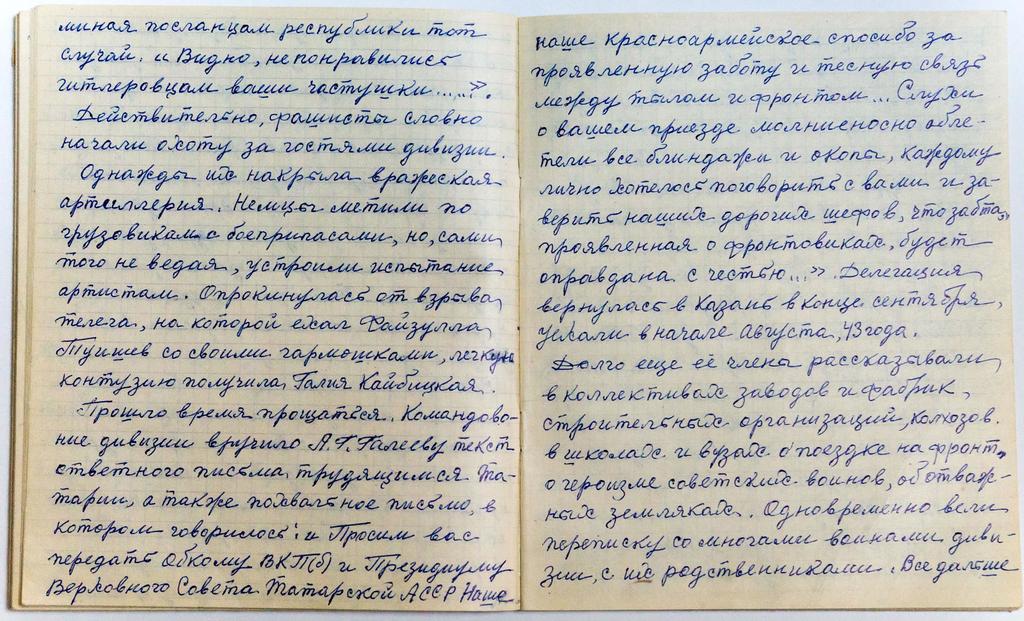 миная посланцам республики тот
случай. „Видно, не понравились
гитлеровцам ваши частушки.....".
Действительно, фашисты словно
начали охоту за гостями дивизии.
Однажды их накрыла вражеская
артиллерия. Немцы метили по
грузовикам с боеприпасами, но, сами
того не ведая, устроили испытание
артистам. Опрокинулась от взрыва
телега, на которой ехал Файзулла
Туишев со своими гармошками, легкую
контузию получила Галия Кайбицкая.
Прошло время прощаться. Командова-
ние дивизии вручило А.Г. Галееву текст
ответного письма трудящимся Та-
тарии, а также похвальное письмо, в
котором говорилось: „Просим вас
передать Обкому ВКП(б) и Президиуму
Верховного Совета Татарской АССР Наше
наше красноармейское спосибо за
проявленную заботу и тесную связь
между тылом и фронтом... Слухи
о вашем приезде молниеносно обле-
тели все блиндажи и окопы, каждому
лично хотелось поговорить с вами и за-
верить наших дорогих шефов, что забта,
проявленная о фронтовиках, будет
оправдана с честью...". Делегация
вернулась в Казань в конце сентября,
уехали в начале августа, 43 года.
Долго еще её члены рассказывали
в коллективах заводов и фабрик,
строительных организаций, колхозов.
в школах и вузах о поездке на фронт,
о героизме советских воинов, об отваж-
ных земляках. Одновременно вели
переписку со многами воинами диви-
зии, с их родственниками. Все дальше